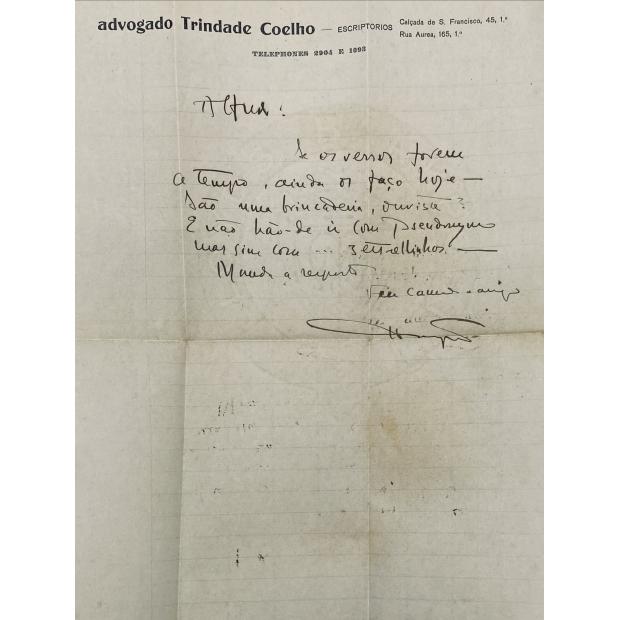 advogado Trindade Coelho — ESCRIPTORIOS
Calçada de S. Francisco, 45, 1.º
Rua Aurea, 165, 1.º
TELEPHONES 2904 E 1093
Se os versos forem
a tempo, ainda os faço hoje —
São uma brincadeira, ouvista?
E não hão-de ir com pseudonymo
mas sim com ... 3 estrellinhas. —
Manda a resposta